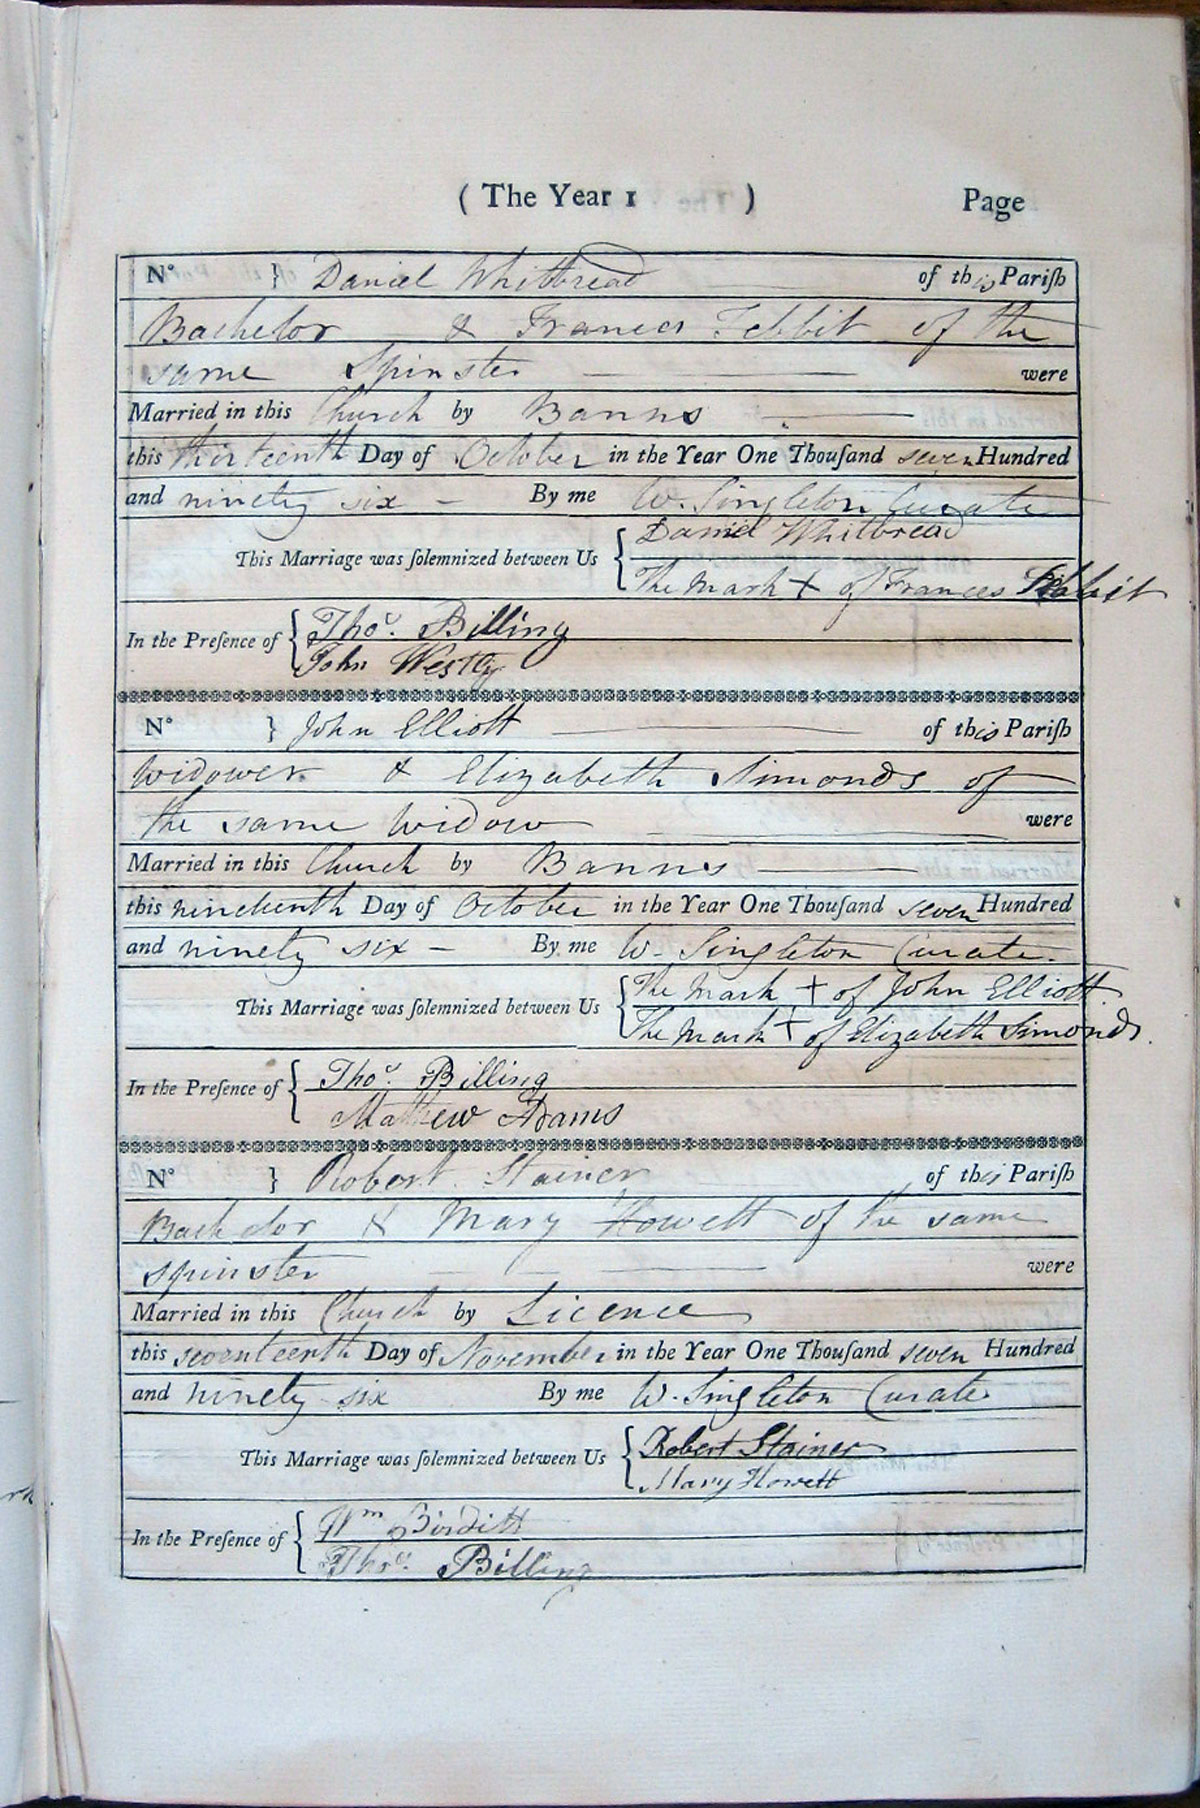 ( The Year 1 ) Page
N° } Daniel Whitbread of this Pariſh
Bachelor & Frances Tebbit of the
same Spinster were
Married in this Church by Banns
this thirteenth Day of October in the Year One Thouſand seven Hundred
and ninety six By me W. Singleton Curate
This Marriage was ſolemnized between Us { Daniel Whitbread
The Mark + of Frances
In the Preſence of { Thos. Billing
John Westly
N° } John Elliott of this Pariſh
Widower & Elizabeth Simonds of
the same Widow were
Married in this Church by Banns
this nineteenth Day of October in the Year One Thouſand seven Hundred
and ninety six By me W. Singleton Curate.
This Marriage was ſolemnized between Us { The Mark + of John Elliott.
The Mark + of Elizabeth Simonds.
In the Preſence of { Thos. Billing
Mathew Adams
N° } Robert Stainer of this Pariſh
Bachelor & Mary Howett of the same
Spinster were
Married in this Church by Licence
this seventeenth Day of November in the Year One Thouſand seven Hundred
and ninety six By me W. Singleton Curate
This Marriage was ſolemnized between Us { Robert Stainer
Mary Howett
In the Preſence of { Wm Birditt
Thos. Billing